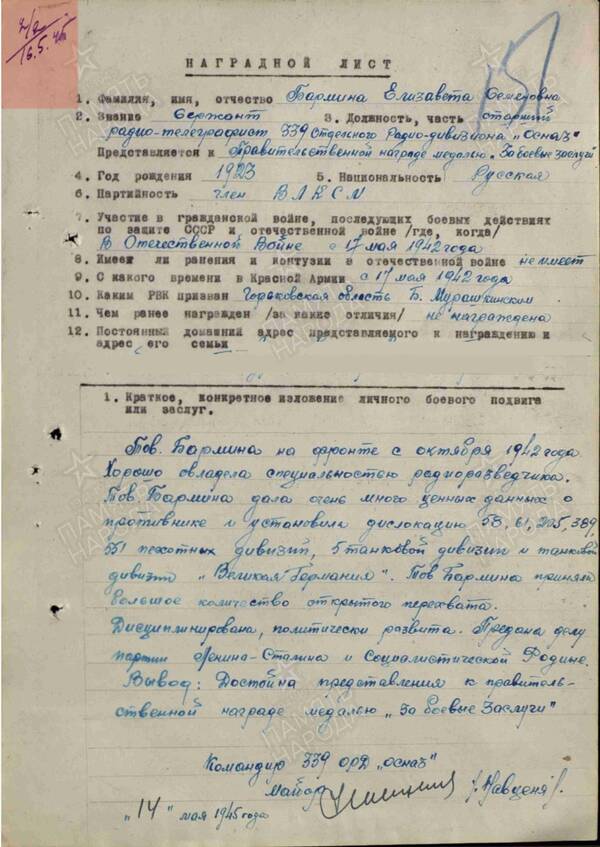 16.5.45
НАГРАДНОЙ ЛИСТ
1. Фамилия, имя, отчество Бармина Елизавета Семеновна
2. Звание Сержант 3. Должность, часть старший
радио-телеграфист 339 Отдельного Радио-дивизиона „ОСНАЗ"
Представляется к Правительственной награде медалью „За боевые заслуги"
4. Год рождения 1923 5. Национальность Русская
6. Партийность член ВЛКСМ
7. Участие в гражданской войне, последующих боевых действиях
по защите СССР и отечественной войне /где, когда/
В Отечественной Войне с 17 мая 1942 года
8. Имеет ли ранения и контузии в отечественной войне не имеет
9. С какого времени в Красной Армии с 17 мая 1942 года
10. Каким РВК призван Горьковская область Б. Мурашкинским
11. Чем ранее награжден /за какие отличия/ не награждена
12. Постоянный домашний адрес представляемого к награждению и
адрес его семьи
1. Краткое, конкретное изложение личного боевого подвига
или заслуг.
Тов. Бармина на фронте с октября 1942 года
Хорошо овладела специальностью радиоразведчика.
Тов. Бармина дала очень много ценных данных о
противнике и установила дислокацию 58, 61, 205, 389,
551 пехотных дивизий, 5 танковой дивизии и танковой
дивизии „Великая Германия". Тов Бармина приняла
большое количество открытого перехвата.
Дисциплинирована, политически развита. Предана делу
партии Ленина-Сталина и Социалистической Родине.
Вывод: Достойна представления к правитель-
ственной награде медалью „За боевые заслуги"
Командир 339 ОРД „ОСНАЗ"
Майор
„14" мая 1945 года
ПАМЯТЬ НАРОДА